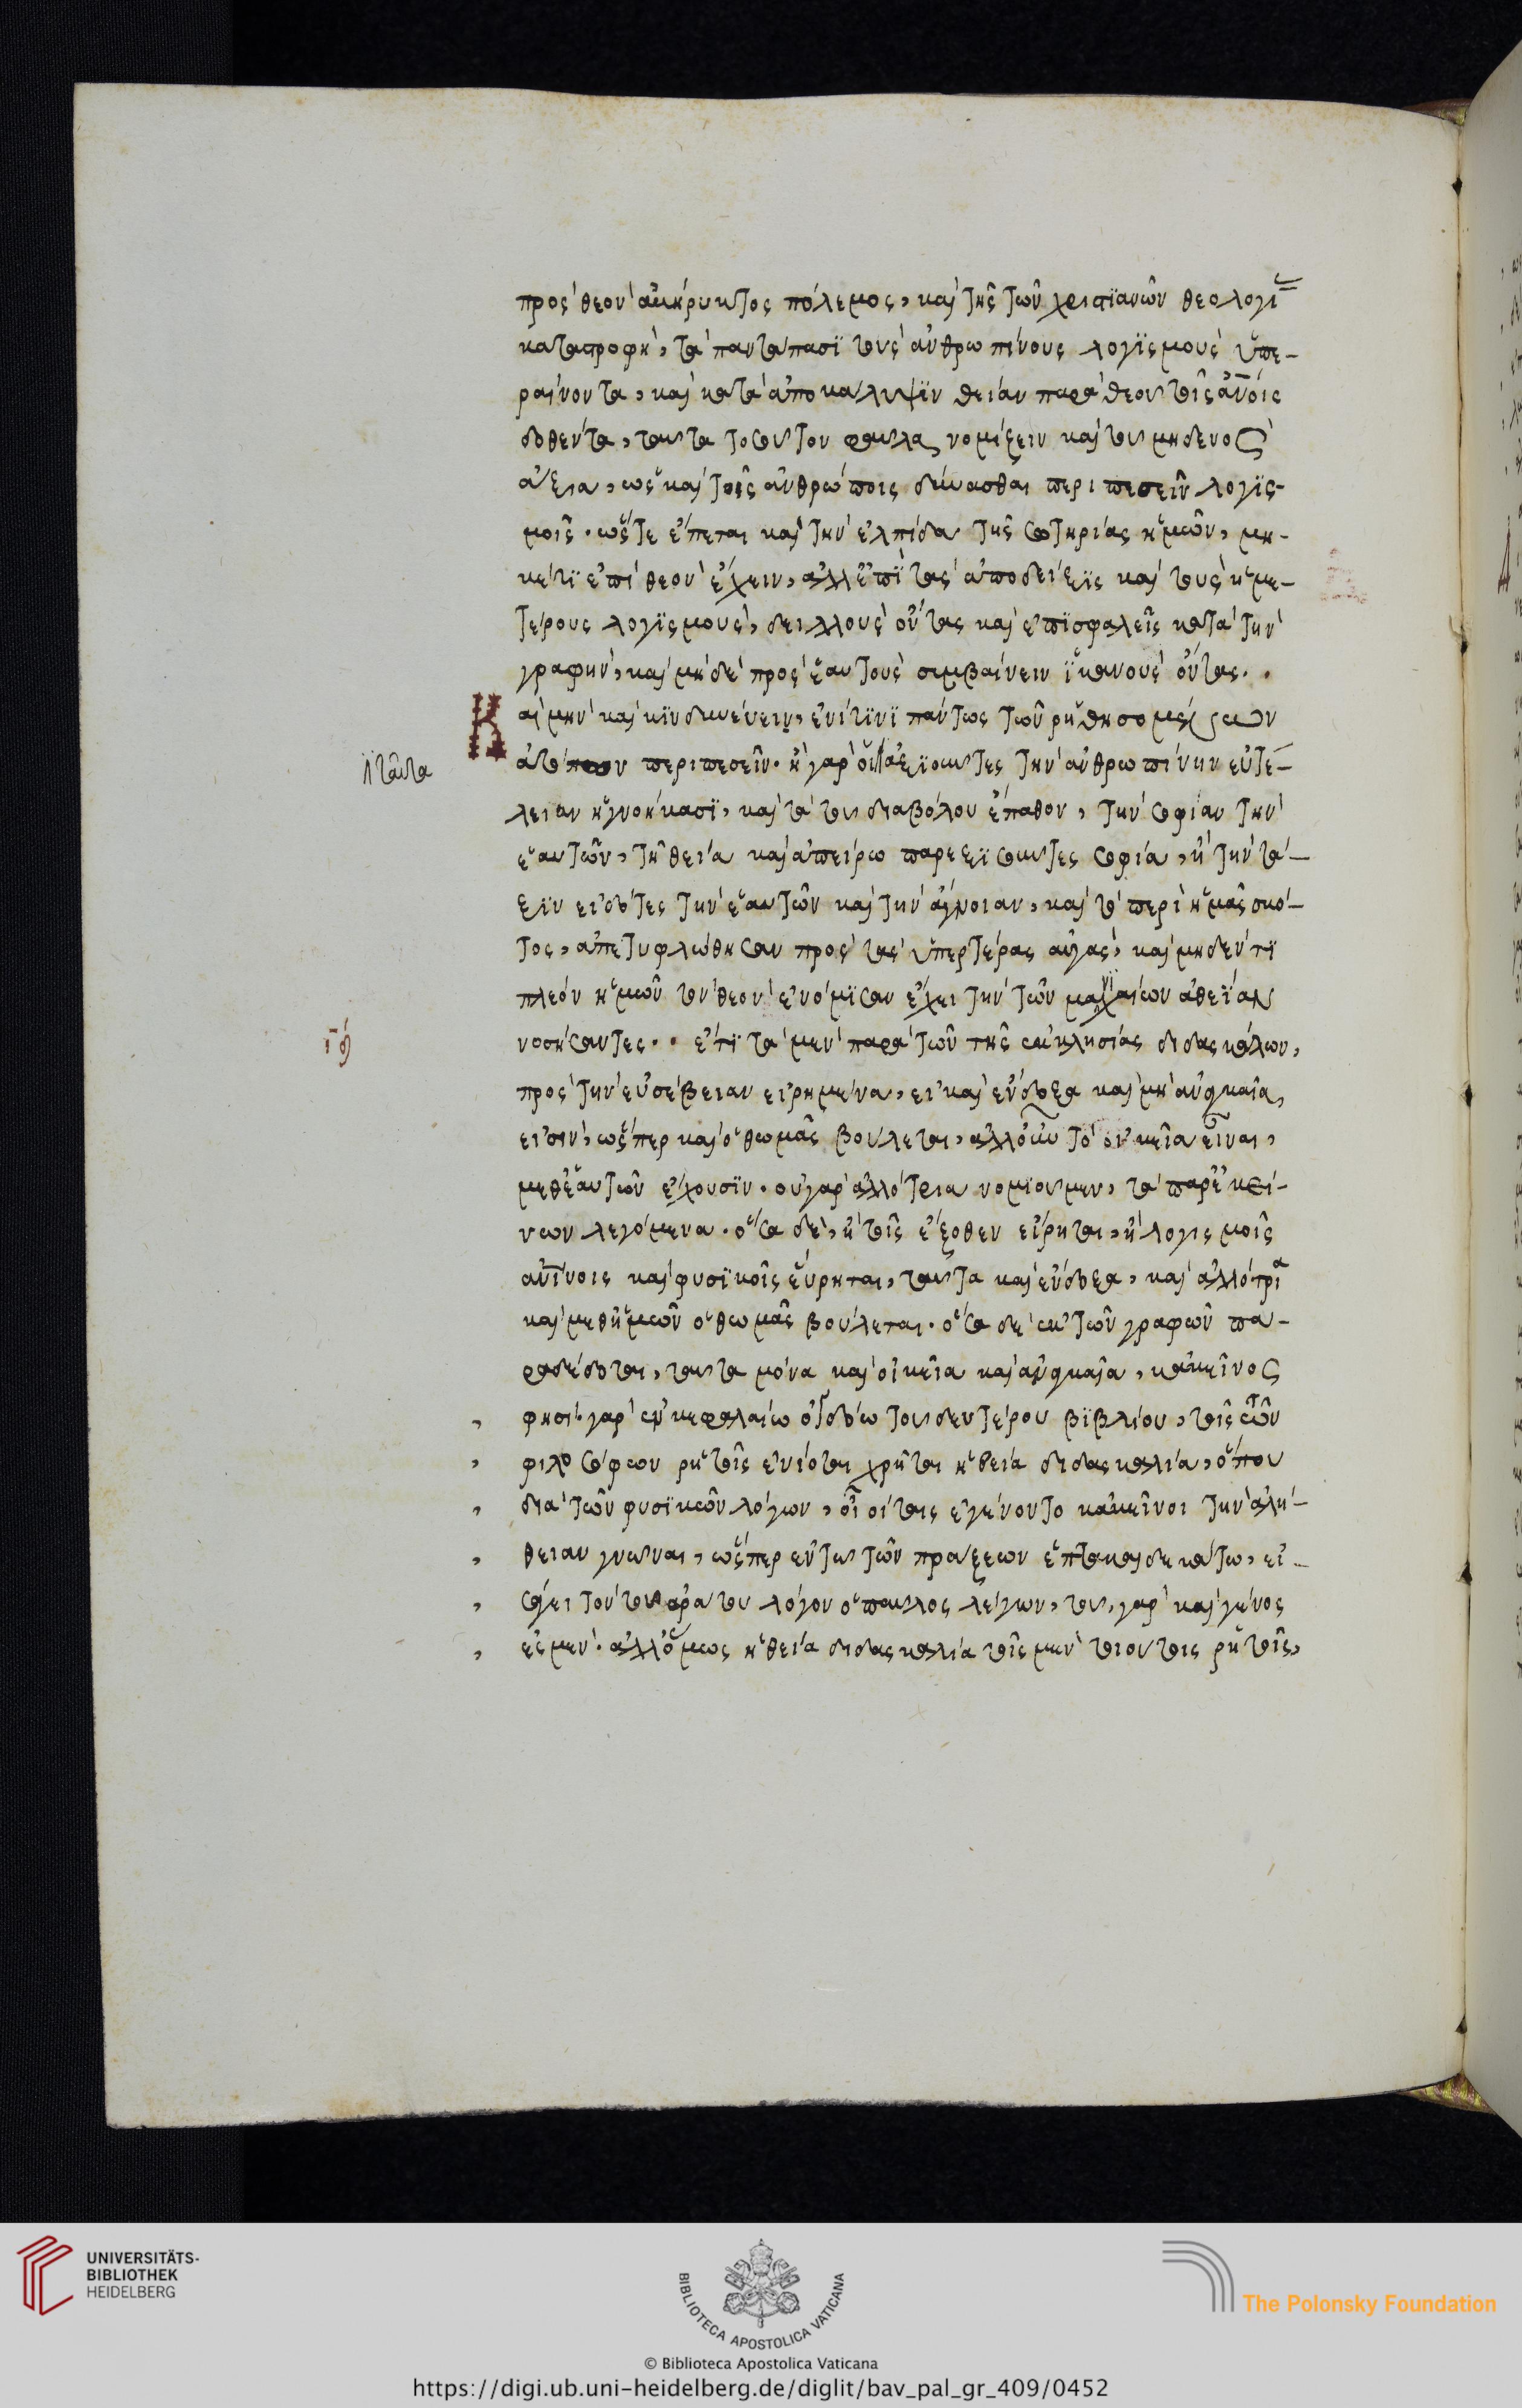 πρὸς θεὸν ἀκήρυκτος πόλεμος, καὶ τῆς τῶν χριστϊανῶν θεολογί
καταστροφὴ, τὰ παντάπασϊ τοὺς ἀνθρωπίνους λογϊσμοὺς ὑπε-
ραίνοντα, καὶ κατὰ ἀποκαλυψϊν θείαν παρὰ θεοῦ τοῖς ἀνοις
δοθέντα, ταῦτα τοσοῦτον φαῦλα νομίζειν καὶ τοῦ μηδενὸς
ἄξια, ὡς καὶ τοῖς ἀνθρώποις δύνασθαι περιπεσεῖν λογϊσ-
μοῖς. ὥστε ἕπεται καὶ τὴν ἐλπίδα τῆς σωτηρίας ἡμῶν, μη-
κέτϊ ἐπὶ θεὸν ἔχειν, ἀλλ' ἐπϊ τὰς ἀποδείξϊς καὶ τοὺς ἡμε-
τέρους λογϊσμοὺς, δειλλοὺς ὄντας καὶ ἐπϊσφαλεῖς κατὰ τὴν
γραφὴν, καὶ μηδὲ πρὸς ἑαυτοὺς συμβαίνειν ϊκανοὺς ὄντας..
Καὶ μὴν καὶ κϊνδυνεύειν, ἑνί τϊνϊ πάντως τῶν ῥηθησομένων
ἀτόπων περιπεσεῖν. ἢ γὰρ οἱ ταῦτα ἀξϊοῦντες τὴν ἀνθρωπίνην εὐτέ-
λειαν ἠγνοήκασϊ, καὶ τὰ τοῦ διαβόλου ἔπαθον, τὴν σοφίαν τὴν
ἑαυτῶν, τῇ θεία καὶ ἀπείρω παρεξϊσοῦντες σοφία, ἢ τὴν τά-
ξϊν εἰδότες τὴν ἑαυτῶν καὶ τὴν ἄγνοιαν, καὶ τὸ περὶ ἡμᾶς σκό-
τος, ἀπετυφλώθησαν πρὸς τὰς ὑπερτέρας αὐγὰς, καὶ μηδέν τϊ
πλέον ἡμῶν τὸν θεὸν ἐνόμϊσαν ἔχει τὴν τῶν μανϊχαίων ἀθεΐαν
νοσήσαντες.. ἔτϊ τὰ μὲν παρὰ τῶν τῆς ἐκκλησίας διδασκάλων,
πρὸς τὴν εὐσέβειαν εἰρημένα, εἰ καὶ ἔνδοξα καὶ μὴ ἀναγκαῖα
εἰσιν, ὥσπερ καὶ ὁ θωμᾶς βούλεται, ἀλλ' οὖν τὸ οἰκεῖα εἶναι,
μεθ' ἑαυτῶν ἔχουσϊν. οὐ γὰρ ἀλλότρια νομϊοῦμεν, τὰ παρ' ἐκεί-
νων λεγόμενα. ὅσα δὲ, ἢ τοῖς ἔξοθεν εἴρηται, ἢ λογισμοῖς
ανίνοις καὶ φυσϊκοῖς εὕρηται, ταῦτα καὶ ἔνδοξα, καὶ ἀλλότρια
καὶ μεθ' ἡμῶν ὁ θωμᾶς βούλεται. ὅσα δὲ ἐκ τῶν γραφῶν πα-
ραδέδοται, ταῦτα μόνα καὶ οἰκεῖα καὶ ἀναγκαῖα, κἀκεῖνος
φησί· γὰρ ἐν κεφαλαίω ὀγδόω τοῦ δευτέρου βϊβλίου, τοῖς τῶν
φιλοσόφων ῥητοῖς ἐνίοτε χρῆται ἡ θεία διδασκαλία, ὅπου
διὰ τῶν φυσϊκῶν λόγων, οἷοί τε ἐγένοντο κἀκεῖνοι τὴν ἀλή-
θειαν γνῶναι, ὥσπερ ἐν τῶ τῶν πράξεων ἑπτακαιδεκάτω, εἰ-
σάγει τὸν τοῦ ἀράτου λόγον ὁ παῦλος λέγων, τοῦ, γὰρ καὶ γένος
ἐσμέν. ἀλλ' ὅμως ἡ θεία διδασκαλία τοῖς μὲν τοιούτοις ῥητοῖς,
ταῦτα
UNIVERSITÄTS-
BIBLIOTHEK
HEIDELBERG
BIBLIOTECA APOSTOLICA VATICANA
The Polonsky Foundation
© Biblioteca Apostolica Vaticana
https://digi.ub.uni-heidelberg.de/diglit/bav_pal_gr_409/0452